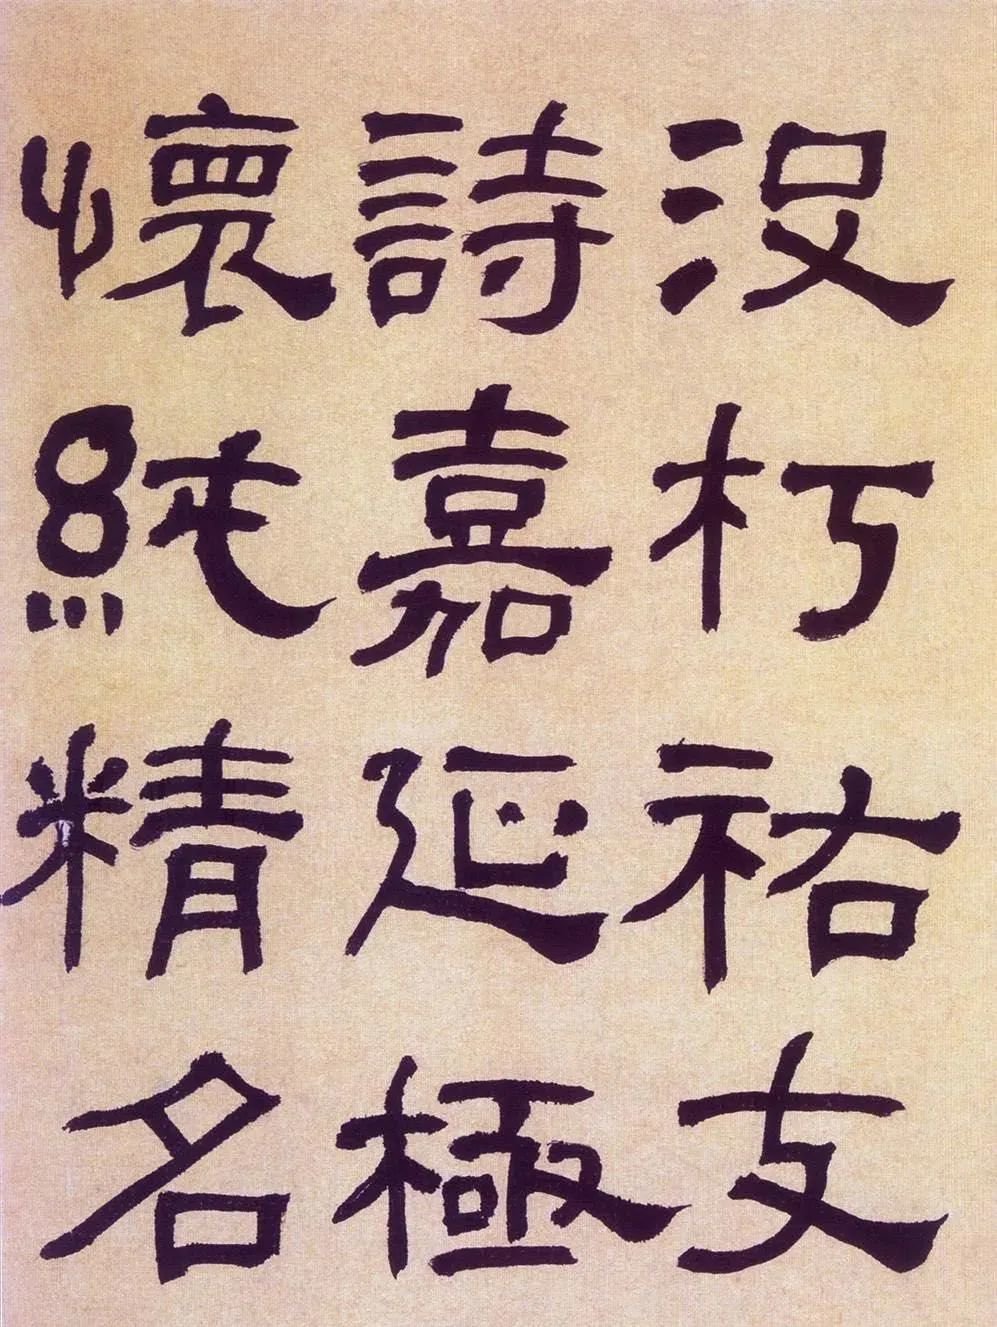 没朽祐支
詩嘉延極
懷純精名